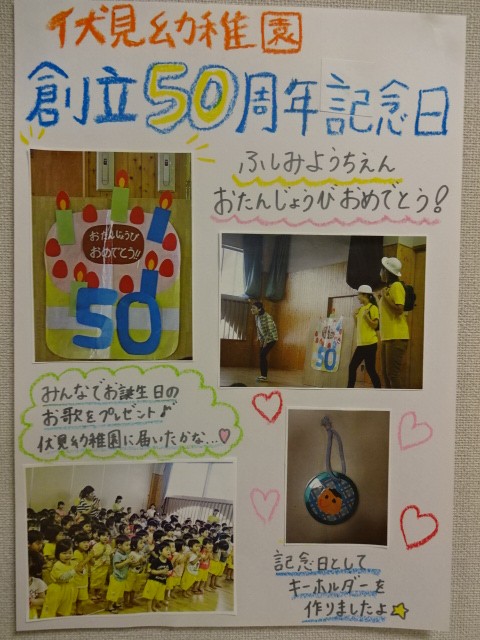 伏見幼稚園
創立50周年記念日
ふしみようちえん
おたんじょうびおめでとう!
おたんじょうび
おめでとう!!
50
50
みんなでお誕生日の
お歌をプレゼント♪
伏見幼稚園に届いたかな…♡
記念日として
キーホルダーを
作りましたよ☆